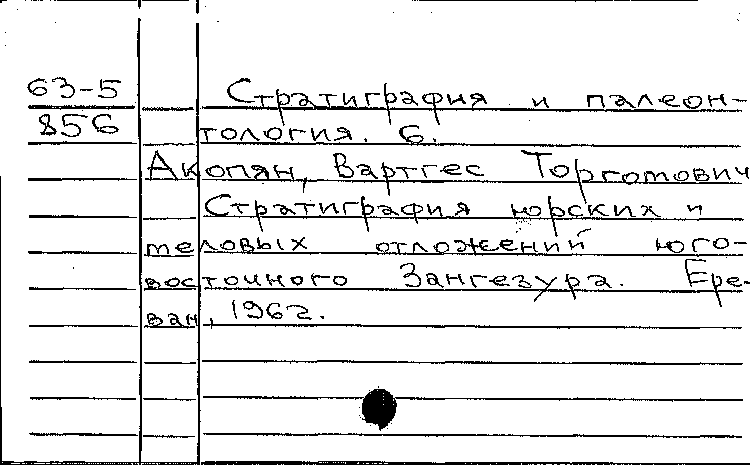 63-5 Стратиграфия и палеон-
856 тология. 6.
Акопян, Вартгес Торгомович
Стратиграфия юрских и
меловых отложений юго-
восточного Зангезура. Ере-
ван, 1962.